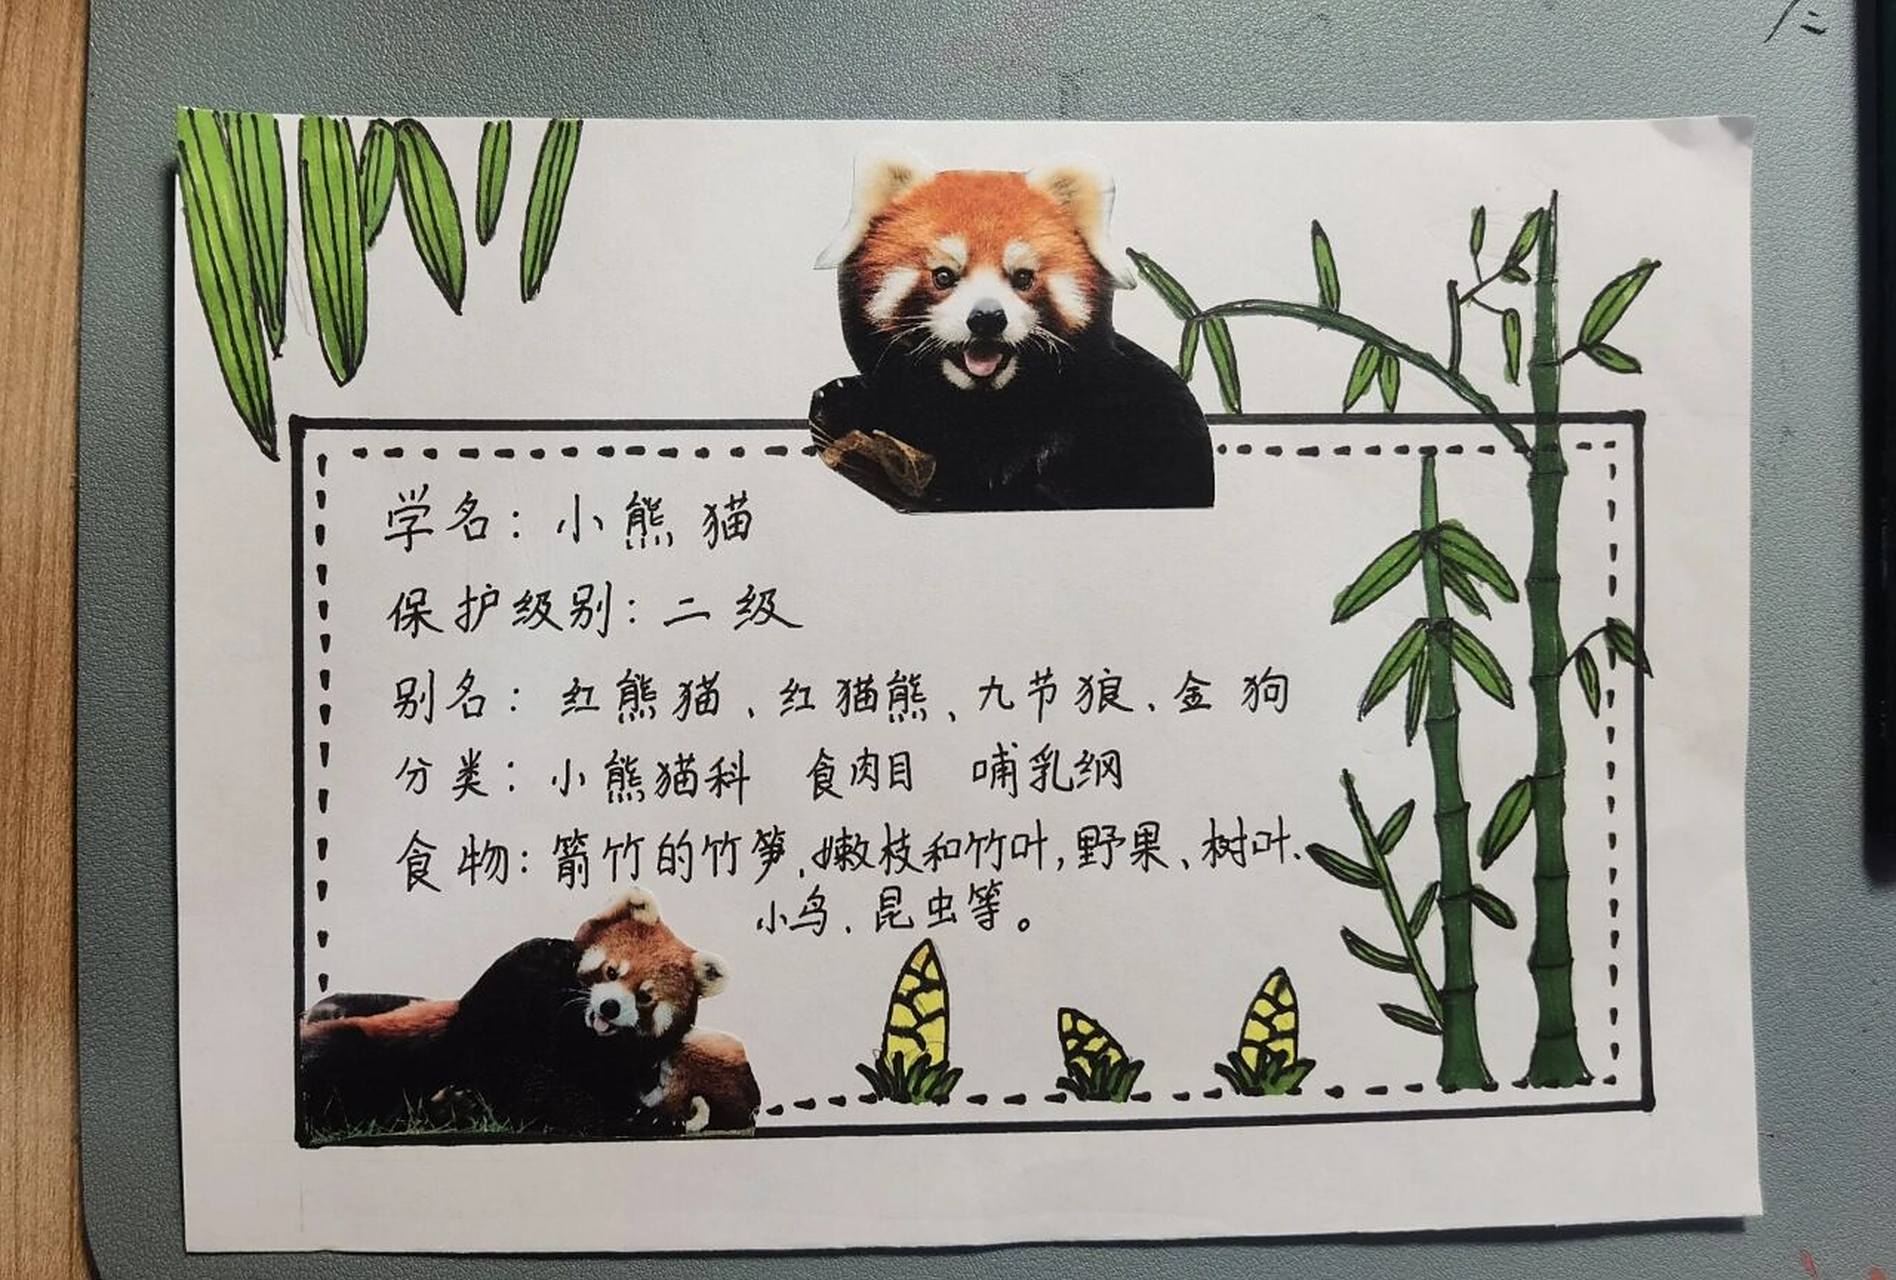 学名：小熊猫
保护级别：二级
别名：红熊猫、红猫熊、九节狼、金狗
分类：小熊猫科 食肉目 哺乳纲
食物：箭竹的竹笋、嫩枝和竹叶，野果、树叶、
小鸟、昆虫等。